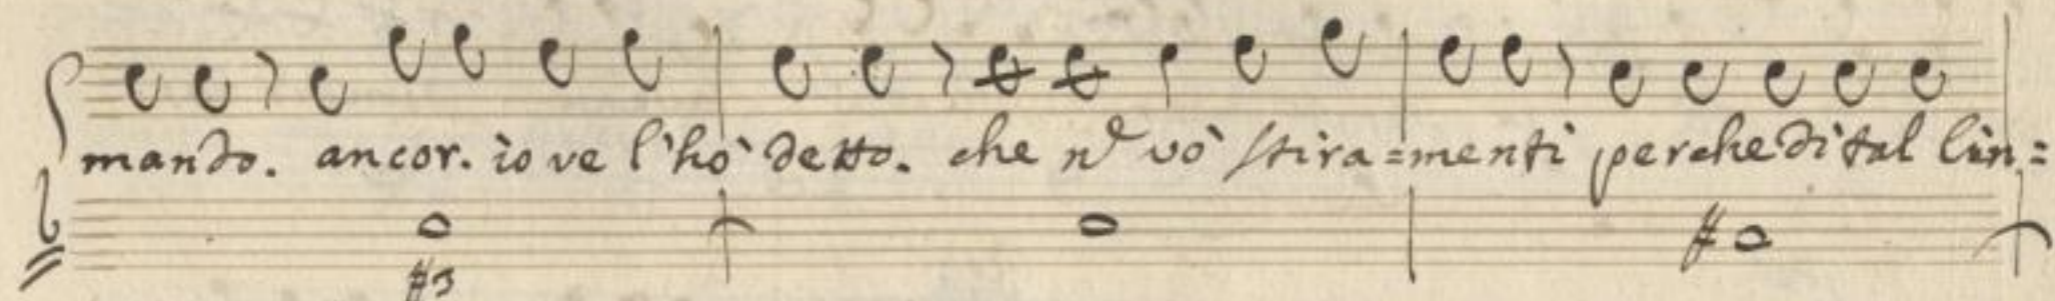 mando. ancor. io ve l'hò detto. che nō vò stira=menti perche di tal lin=
#3